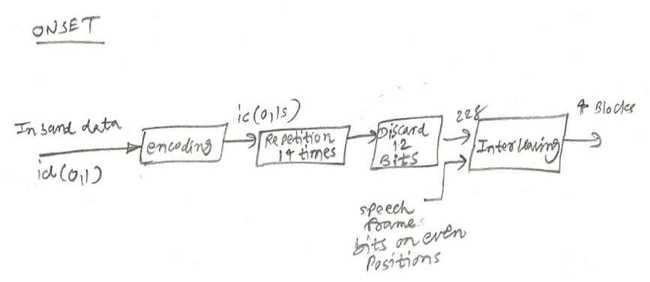 ONSET
In band data
id(0,1)
encoding
ic(0,15)
Repetition
14 times
Discard
12
BITS
228
Interleaving
4 Blocks
speech
frame
bits on even
Positions